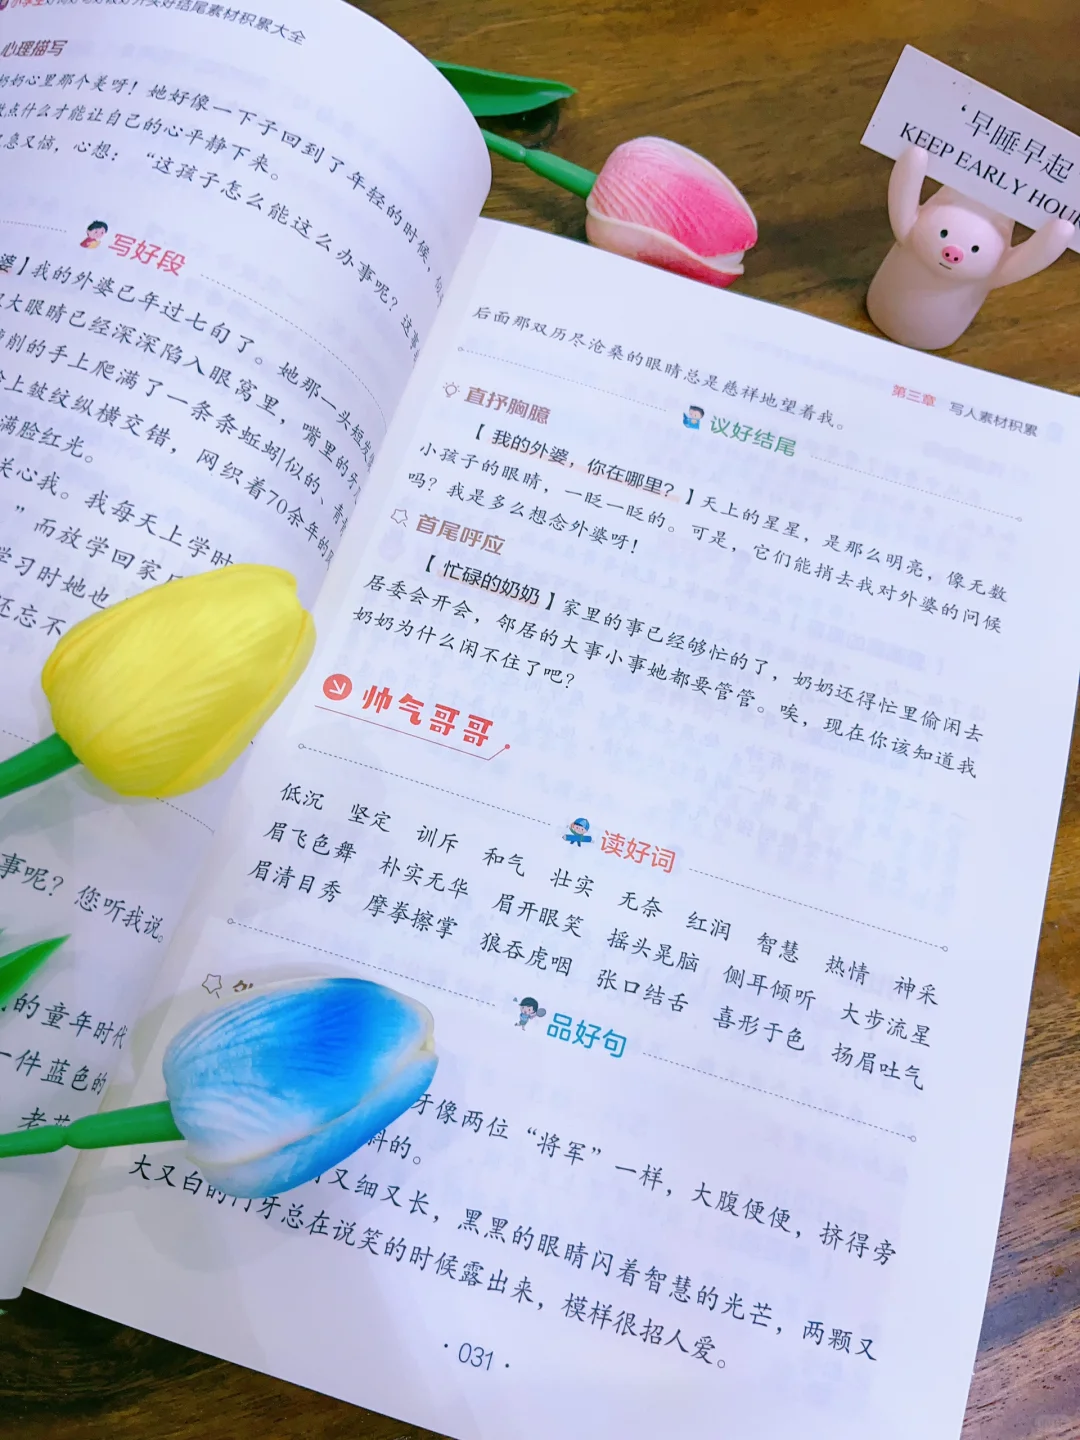 好结尾素材积累大全
心理描写
奶奶心里那个美呀！她好像一下子回到了年轻的时候，
点什么才能让自己的心平静下来。
急又恼，心想：“这孩子怎么能这么办事呢？这事
写好段
婆】我的外婆已年过七旬了。她那一头短发
大眼睛已经深深陷入眼窝里，嘴里的牙
削的手上爬满了一条条蚯蚓似的、青
上皱纹纵横交错，网织着70余年的
满脸红光。
关心我。我每天上学时
”而放学回家
学习时她也
还忘不
事呢？您听我说。
的童年时代
一件蓝色的
第三章 写人素材积累
后面那双历尽沧桑的眼睛总是慈祥地望着我。
议好结尾
直抒胸臆
【我的外婆，你在哪里？】天上的星星，是那么明亮，像无数
小孩子的眼睛，一眨一眨的。可是，它们能捎去我对外婆的问候
吗？我是多么想念外婆呀！
首尾呼应
【忙碌的奶奶】家里的事已经够忙的了，奶奶还得忙里偷闲去
居委会开会，邻居的大事小事她都要管管。唉，现在你该知道我
奶奶为什么闲不住了吧？
帅气哥哥
读好词
低沉 坚定 训斥 和气 壮实 无奈 红润 智慧 热情 神采
眉飞色舞 朴实无华 眉开眼笑 摇头晃脑 侧耳倾听 大步流星
眉清目秀 摩拳擦掌 狼吞虎咽 张口结舌 喜形于色 扬眉吐气
品好句
牙像两位“将军”一样，大腹便便，挤得旁
斜的。
又细又长，黑黑的眼睛闪着智慧的光芒，两颗又
大又白的门牙总在说笑的时候露出来，模样很招人爱。
·031·
‘早睡早起
KEEP EARLY HOUR